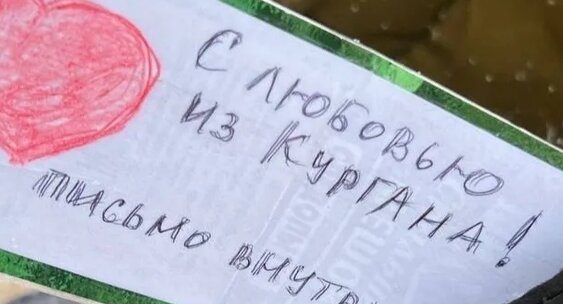 С ЛЮБОВЬЮ
ИЗ КУРГАНА!
ПИСЬМО ВНУТРИ